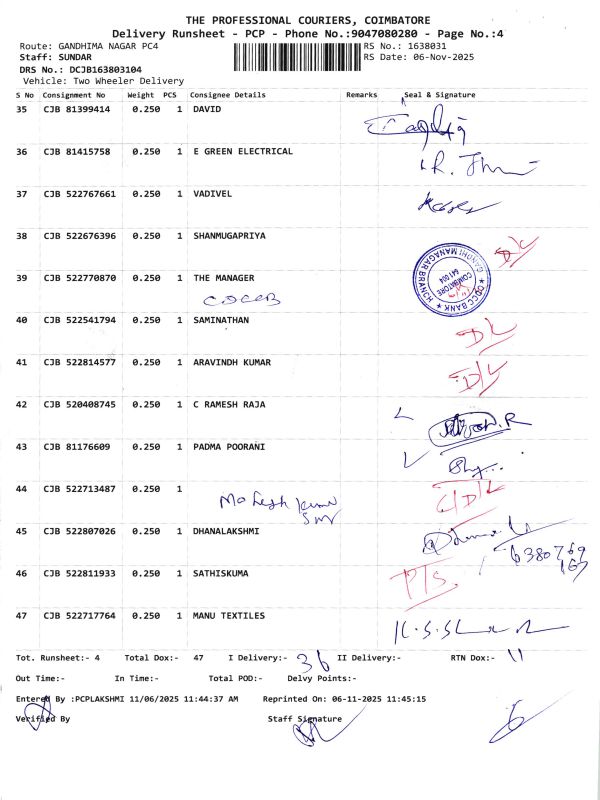 THE PROFESSIONAL COURIERS, COIMBATORE
Delivery Runsheet - PCP - Phone No.:9047080280 - Page No.:4
Route: GANDHIMA NAGAR PC4 RS No.: 1638031
Staff: SUNDAR RS Date: 06-Nov-2025
DRS No.: DCJB163803104
Vehicle: Two Wheeler Delivery
S No Consignment No Weight PCS Consignee Details Remarks Seal & Signature
35 CJB 81399414 0.250 1 DAVID
36 CJB 81415758 0.250 1 E GREEN ELECTRICAL
37 CJB 522767661 0.250 1 VADIVEL
38 CJB 522676396 0.250 1 SHANMUGAPRIYA D/L
39 CJB 522770870 0.250 1 THE MANAGER
CDCCB
GANDHI MANAGAR BRANCH
CDCC BANK
COIMBATORE
641 004
40 CJB 522541794 0.250 1 SAMINATHAN D/L
41 CJB 522814577 0.250 1 ARAVINDH KUMAR D/L
42 CJB 520408745 0.250 1 C RAMESH RAJA
43 CJB 81176609 0.250 1 PADMA POORANI
44 CJB 522713487 0.250 1 D/L
45 CJB 522807026 0.250 1 DHANALAKSHMI
46 CJB 522811933 0.250 1 SATHISKUMA P/S.
47 CJB 522717764 0.250 1 MANU TEXTILES
Tot. Runsheet:- 4 Total Dox:- 47 I Delivery:- 36 II Delivery:- RTN Dox:- 11
Out Time:- In Time:- Total POD:- Delvy Points:-
Entered By :PCPLAKSHMI 11/06/2025 11:44:37 AM Reprinted On: 06-11-2025 11:45:15
Verified By Staff Signature